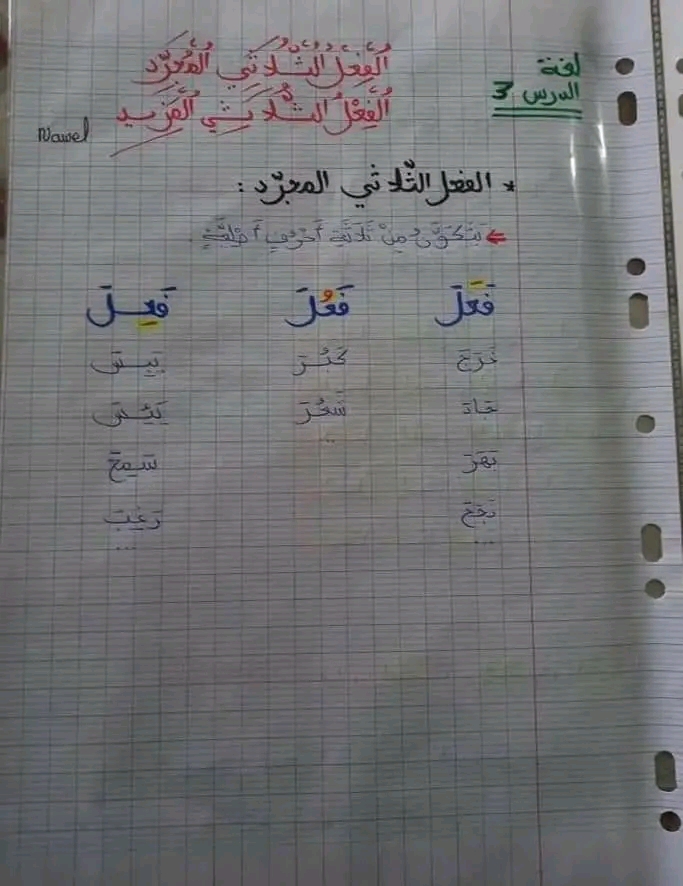 لغة
الدرس 3
الْفِعْلُ الثُّلَاثِي الْمُجَرَّد
الْفِعْلُ الثُّلَاثِي الْمَزِيد
Nawel
* الفعل الثّلاثي المجرّد :
← يَتَكَوَّنُ مِنْ ثَلَاثَةِ أَحْرُفٍ أَصْلِيَّةٍ
فَعَلَ فَعُلَ فَعِلَ
خَرَجَ كَبُرَ يَبِسَ
جَادَ شَعُرَ يَئِسَ
...
بَهَرَ سَمِعَ
نَجَحَ رَغِبَ
... ...